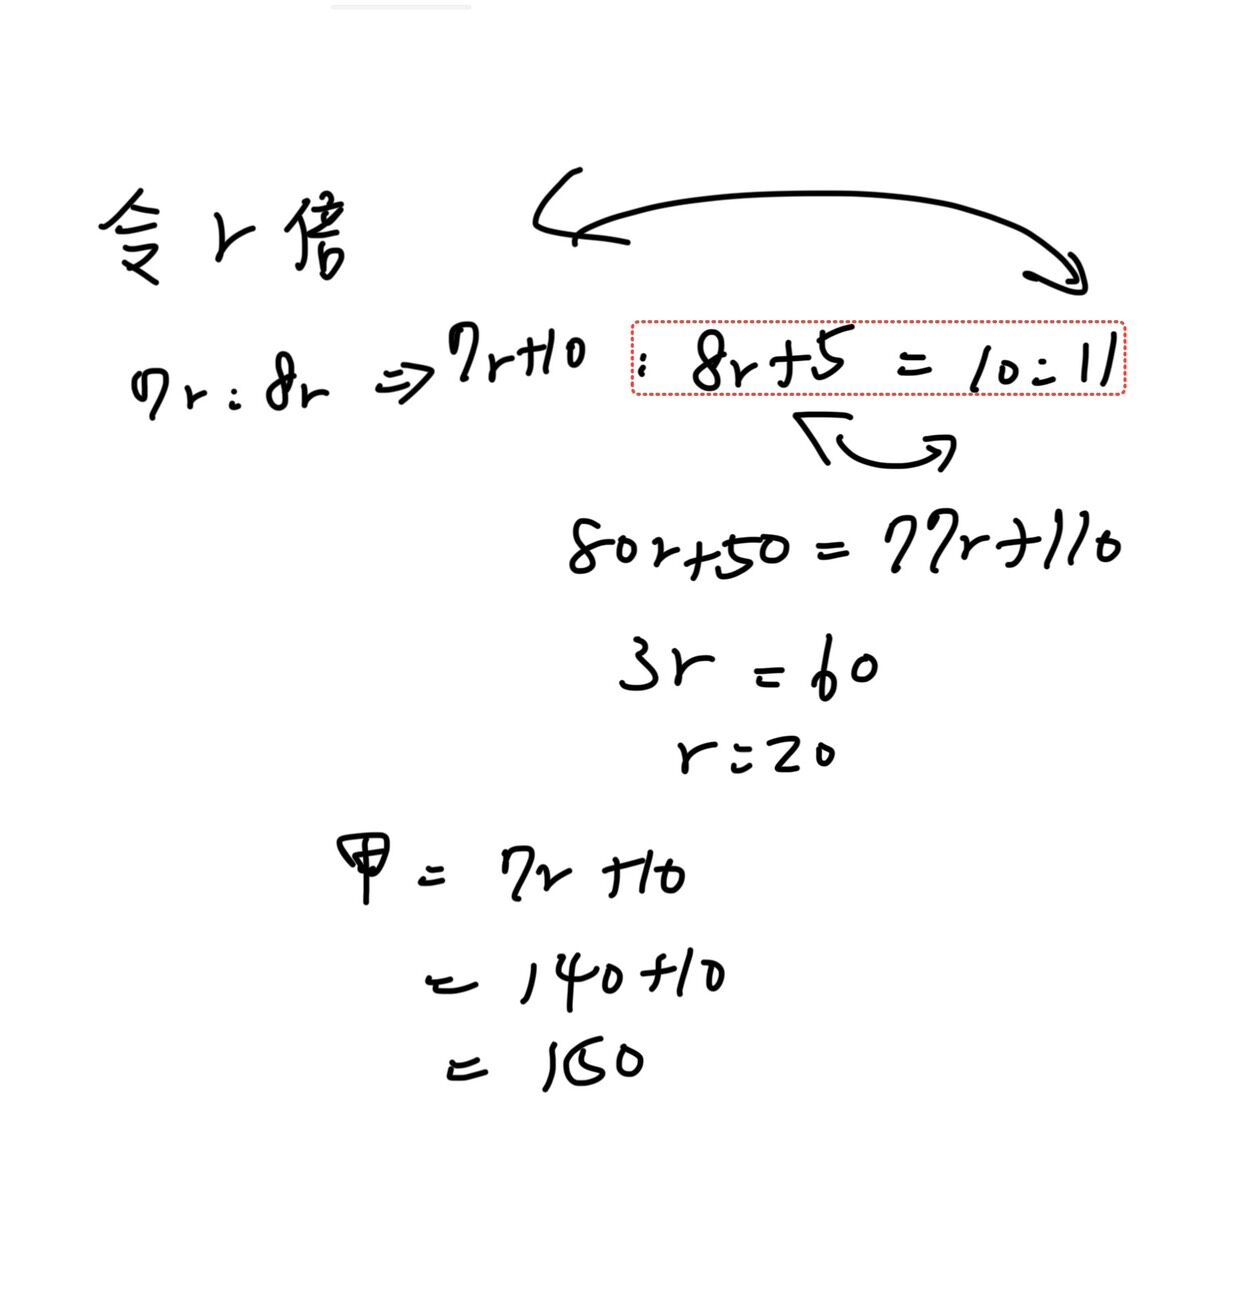 令 r 倍
7r : 8r ⇒ 7r+10 : 8r+5 = 10:11
80r+50 = 77r+110
3r = 60
r=20
甲 = 7r +10
= 140+10
= 150